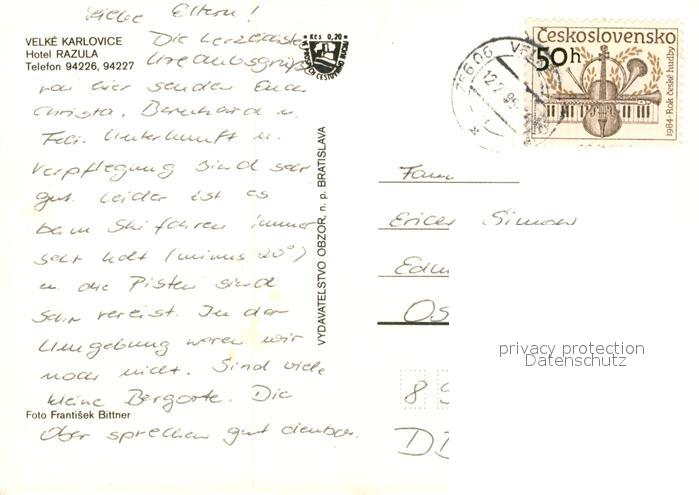 Liebe Eltern!
VELKÉ KARLOVICE
Hotel RAZULA
Telefon 94226, 94227
Kčs 0,20
Die herzlichsten
Urlaubsgrüße
von hier senden Euch
Christa, Bernhard u.
Feli. Unterkunft u.
Verpflegung sind sehr
gut. Leider ist es
beim Skifahren immer
sehr kalt (minus 20°)
u. die Pisten sind
sehr vereist. In der
Umgebung waren wir
noch nicht. Sind viele
kleine Bergorte. Die
Foto František Bittner
Ober sprechen gut deutsch.
VYDAVATEĽSTVO OBZOR, n. p. BRATISLAVA
756 06
Československo
50h
1984 · Rok české hudby
Fam
Erich Simon
Edm
Os
privacy protection
Datenschutz
8 9
DD